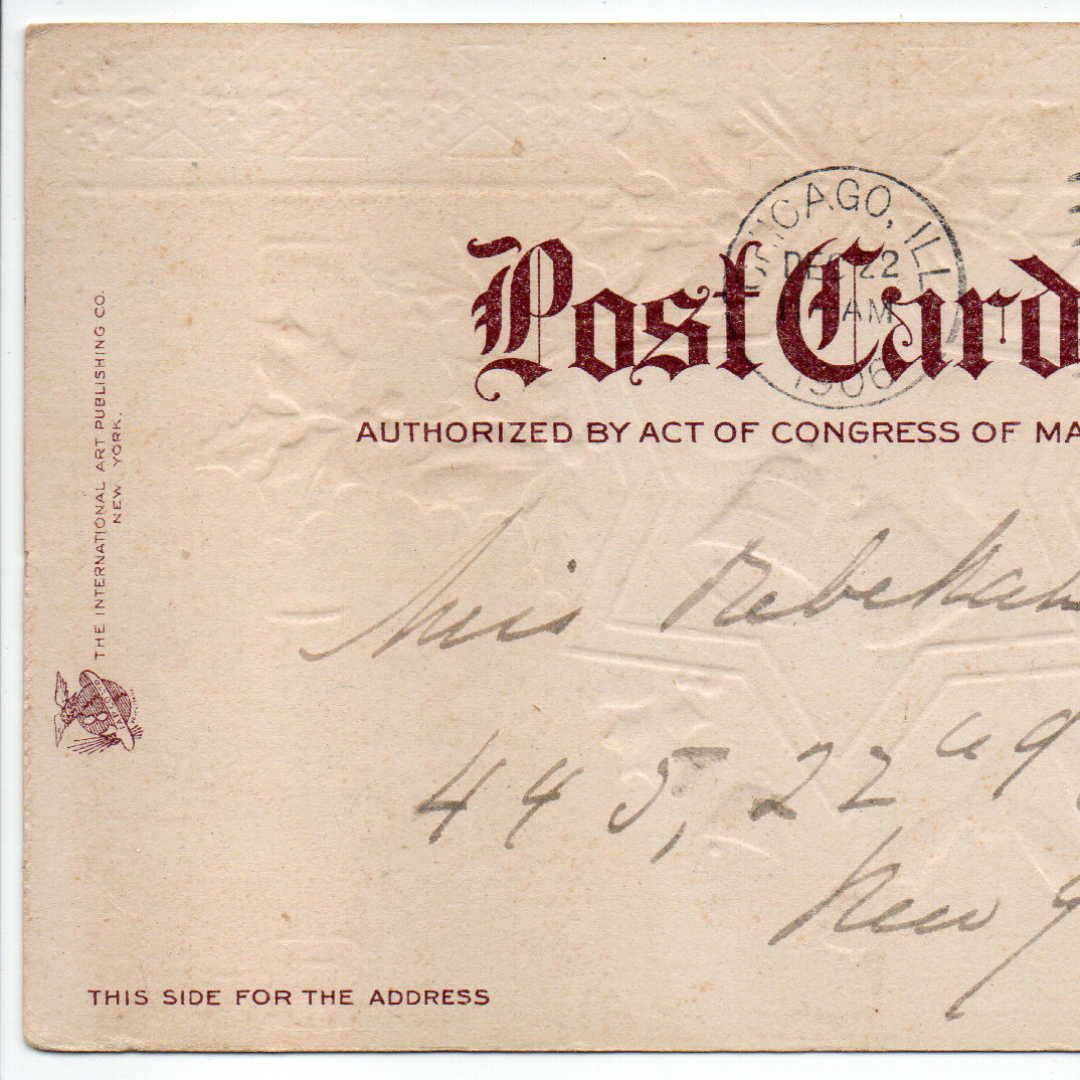 CHICAGO, ILL
DEC 22
AM
1906
Post Card
AUTHORIZED BY ACT OF CONGRESS OF MA
THE INTERNATIONAL ART PUBLISHING CO.
NEW YORK.
Miss Rebekah
445, 22
New Y
THIS SIDE FOR THE ADDRESS